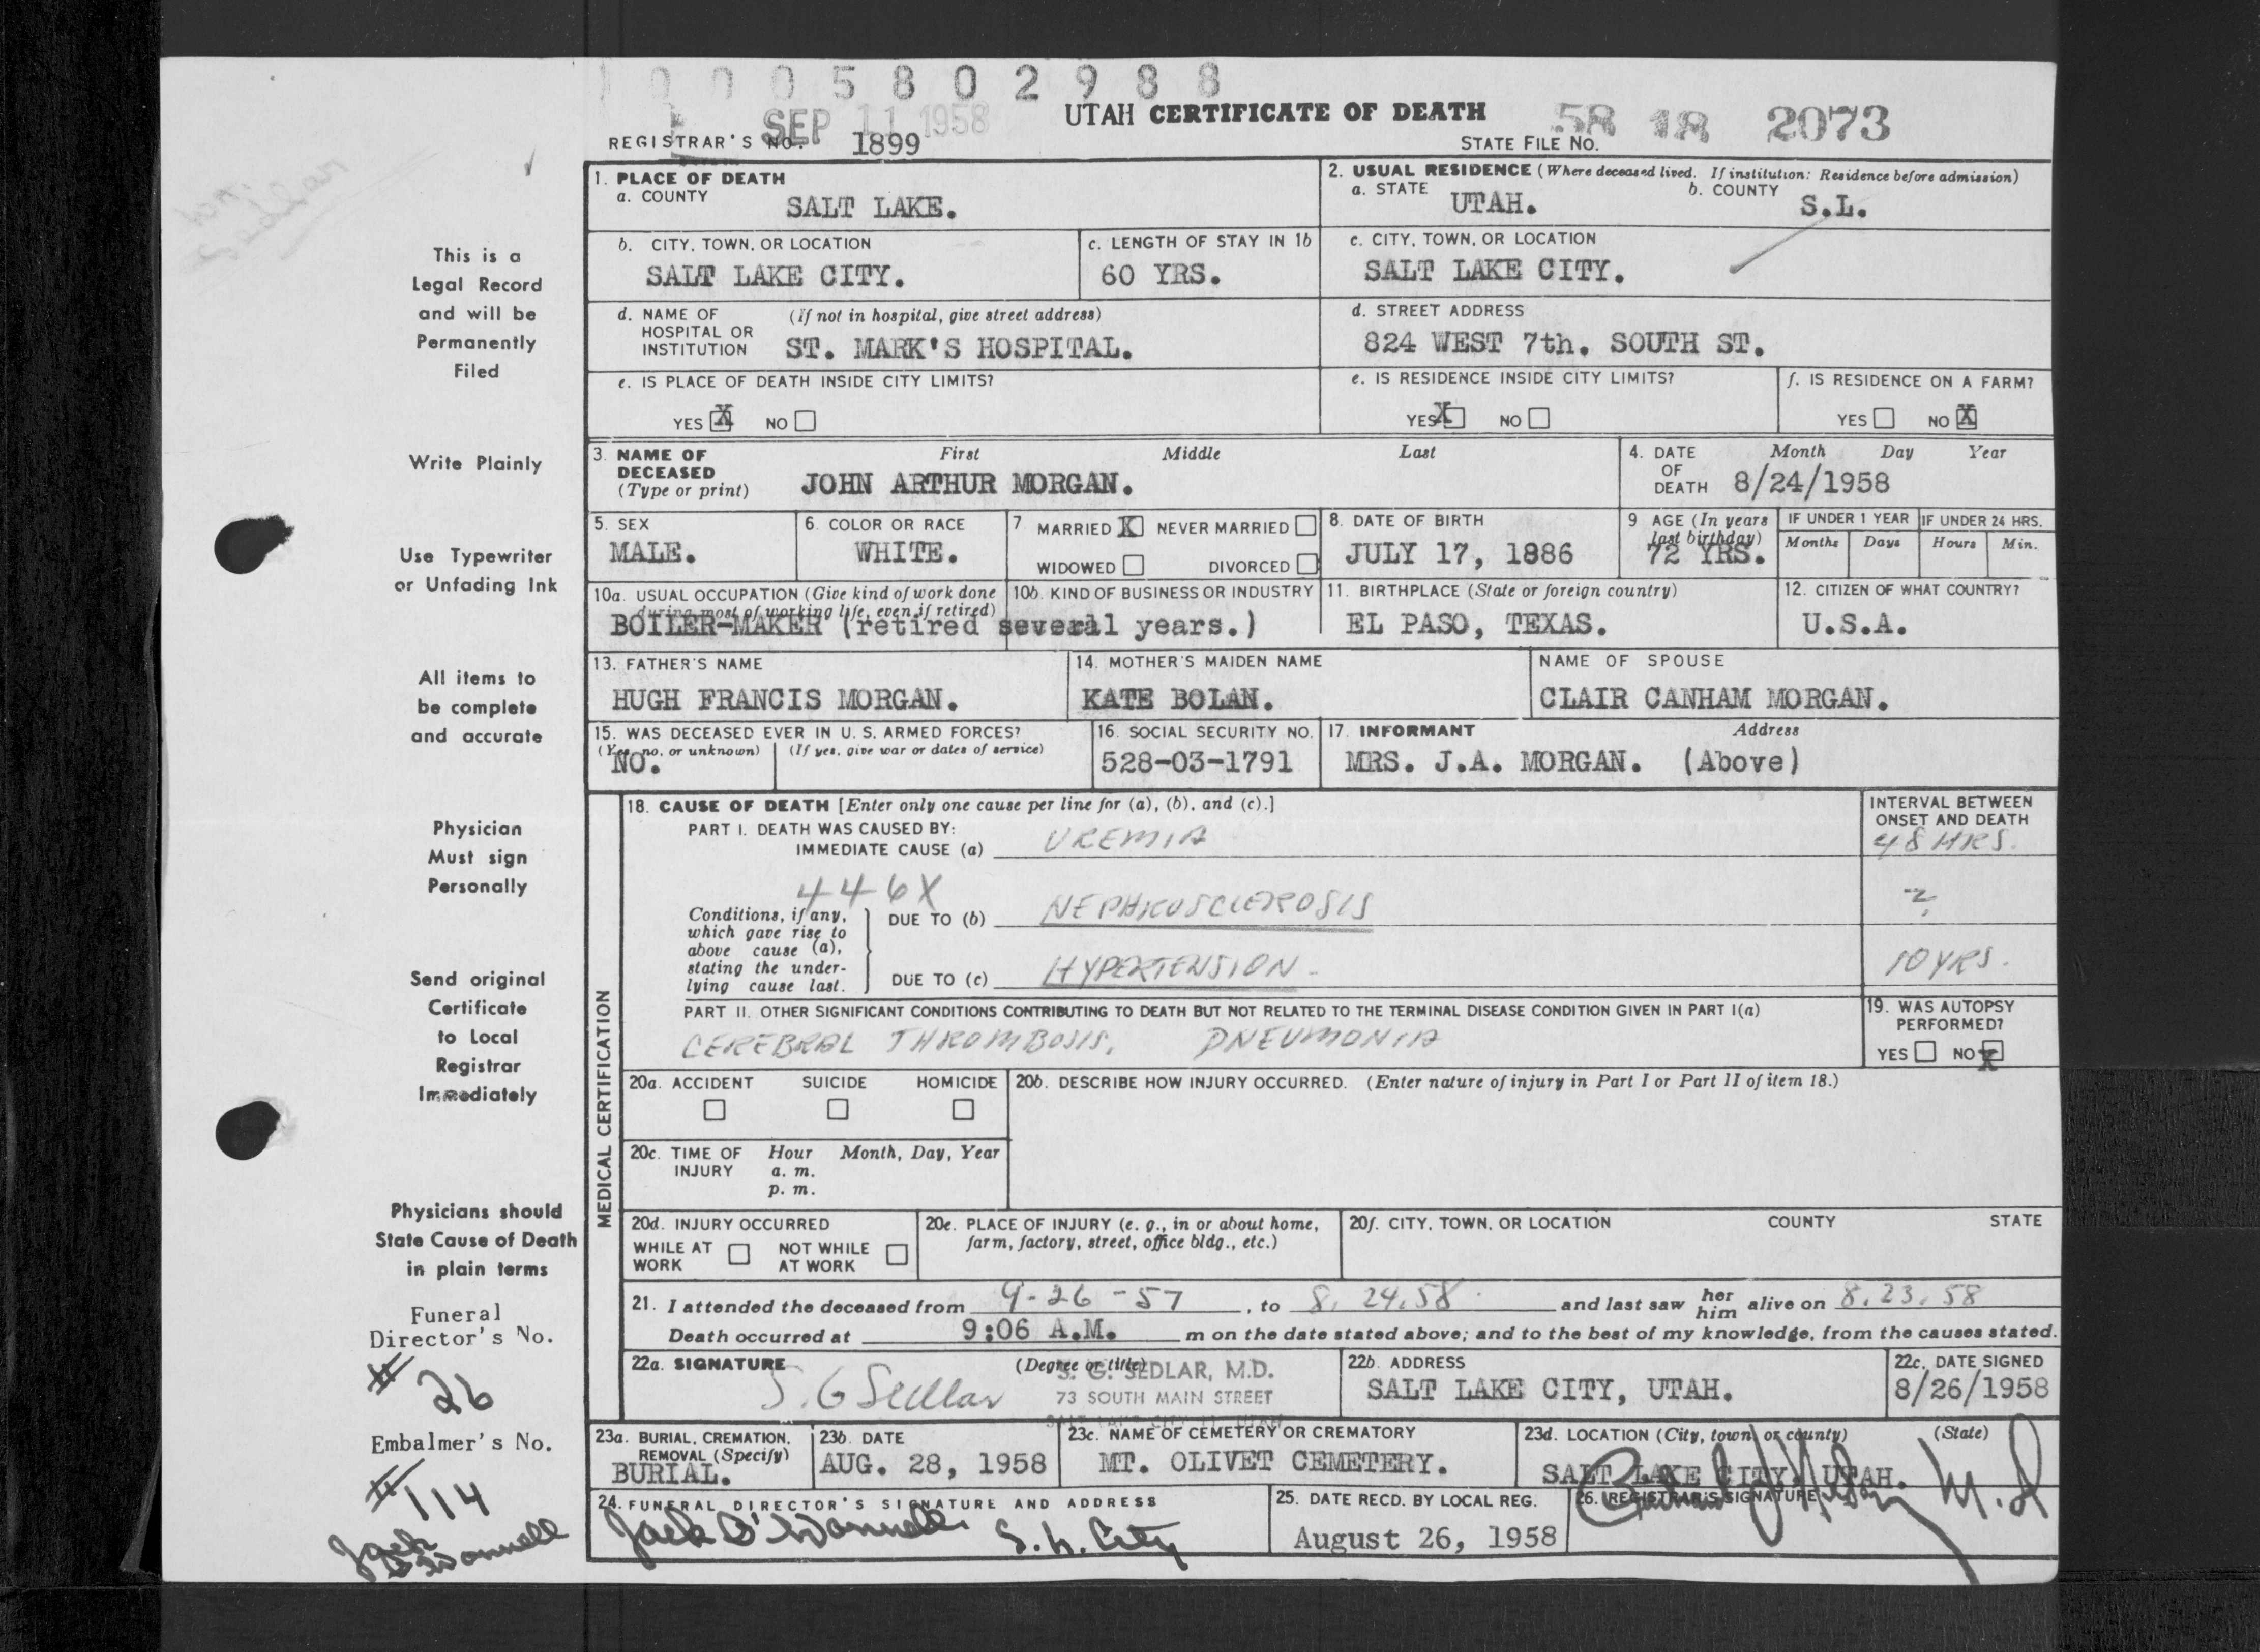 0 0 0 5 8 0 2 9 8 8
SEP 11 1958
UTAH CERTIFICATE OF DEATH
58 18 2073
REGISTRAR'S NO. 1899
STATE FILE NO.
This is a
Legal Record
and will be
Permanently
Filed
Write Plainly
Use Typewriter
or Unfading Ink
All items to
be complete
and accurate
Physician
Must sign
Personally
Send original
Certificate
to Local
Registrar
Immediately
Physicians should
State Cause of Death
in plain terms
Funeral
Director's No.
# 26
Embalmer's No.
# 114
Jack
O'Donnell
1. PLACE OF DEATH
a. COUNTY SALT LAKE.
2. USUAL RESIDENCE (Where deceased lived. If institution: Residence before admission)
a. STATE UTAH. b. COUNTY S.L.
b. CITY, TOWN, OR LOCATION
SALT LAKE CITY.
c. LENGTH OF STAY IN 1b
60 YRS.
c. CITY, TOWN, OR LOCATION
SALT LAKE CITY.
d. NAME OF (If not in hospital, give street address)
HOSPITAL OR
INSTITUTION ST. MARK'S HOSPITAL.
d. STREET ADDRESS
824 WEST 7th. SOUTH ST.
e. IS PLACE OF DEATH INSIDE CITY LIMITS?
YES X NO
e. IS RESIDENCE INSIDE CITY LIMITS?
YES X NO
f. IS RESIDENCE ON A FARM?
YES NO X
3. NAME OF First Middle Last
DECEASED
(Type or print) JOHN ARTHUR MORGAN.
4. DATE Month Day Year
OF
DEATH 8/24/1958
5. SEX
MALE.
6. COLOR OR RACE
WHITE.
7. MARRIED X NEVER MARRIED
WIDOWED DIVORCED
8. DATE OF BIRTH
JULY 17, 1886
9 AGE (In years
last birthday)
72 YRS.
IF UNDER 1 YEAR
Months Days
IF UNDER 24 HRS.
Hours Min.
10a. USUAL OCCUPATION (Give kind of work done
during most of working life, even if retired)
10b. KIND OF BUSINESS OR INDUSTRY
BOILER-MAKER (retired several years.)
11. BIRTHPLACE (State or foreign country)
EL PASO, TEXAS.
12. CITIZEN OF WHAT COUNTRY?
U.S.A.
13. FATHER'S NAME
HUGH FRANCIS MORGAN.
14. MOTHER'S MAIDEN NAME
KATE BOLAN.
NAME OF SPOUSE
CLAIR CANHAM MORGAN.
15. WAS DECEASED EVER IN U. S. ARMED FORCES?
(Yes, no, or unknown) (If yes, give war or dates of service)
NO.
16. SOCIAL SECURITY NO.
528-03-1791
17. INFORMANT Address
MRS. J.A. MORGAN. (Above)
MEDICAL CERTIFICATION
18. CAUSE OF DEATH [Enter only one cause per line for (a), (b), and (c).]
INTERVAL BETWEEN
ONSET AND DEATH
PART I. DEATH WAS CAUSED BY:
IMMEDIATE CAUSE (a) UREMIA 48 HRS.
446X
Conditions, if any,
which gave rise to
above cause (a),
stating the under-
lying cause last.
DUE TO (b) NEPHROSCLEROSIS ?
DUE TO (c) HYPERTENSION - 10 YRS.
PART II. OTHER SIGNIFICANT CONDITIONS CONTRIBUTING TO DEATH BUT NOT RELATED TO THE TERMINAL DISEASE CONDITION GIVEN IN PART I(a)
CEREBRAL THROMBOSIS. PNEUMONIA
19. WAS AUTOPSY
PERFORMED?
YES NO X
20a. ACCIDENT SUICIDE HOMICIDE
20b. DESCRIBE HOW INJURY OCCURRED. (Enter nature of injury in Part I or Part II of item 18.)
20c. TIME OF Hour Month, Day, Year
INJURY a. m.
p. m.
20d. INJURY OCCURRED
WHILE AT NOT WHILE
WORK AT WORK
20e. PLACE OF INJURY (e. g., in or about home,
farm, factory, street, office bldg., etc.)
20f. CITY, TOWN, OR LOCATION COUNTY STATE
21. I attended the deceased from 9-26-57, to 8.24.58 and last saw her him alive on 8.23.58
Death occurred at 9:06 A.M. m on the date stated above; and to the best of my knowledge, from the causes stated.
22a. SIGNATURE (Degree or title)
S. G Sedlar
S. G. SEDLAR, M.D.
73 SOUTH MAIN STREET
SALT LAKE CITY 11, UTAH
22b. ADDRESS
SALT LAKE CITY, UTAH.
22c. DATE SIGNED
8/26/1958
23a. BURIAL, CREMATION,
REMOVAL (Specify)
BURIAL.
23b. DATE
AUG. 28, 1958
23c. NAME OF CEMETERY OR CREMATORY
MT. OLIVET CEMETERY.
23d. LOCATION (City, town, or county) (State)
SALT LAKE CITY, UTAH.
24. FUNERAL DIRECTOR'S SIGNATURE AND ADDRESS
Jack O'Donnell S. L. City
25. DATE RECD. BY LOCAL REG.
August 26, 1958
26. REGISTRAR'S SIGNATURE
M.D